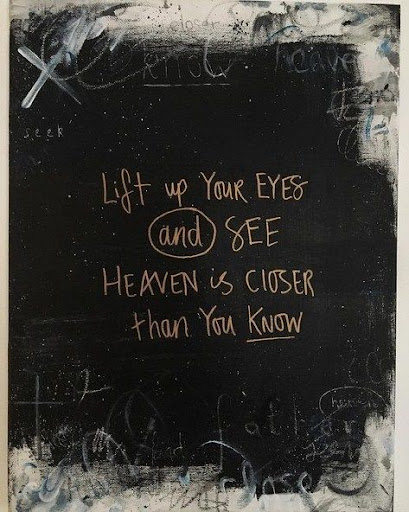 closer
know heaven
seek
Lift up YOUR EYES
and SEE
HEAVEN is CLOSER
than You KNOW
father
closer